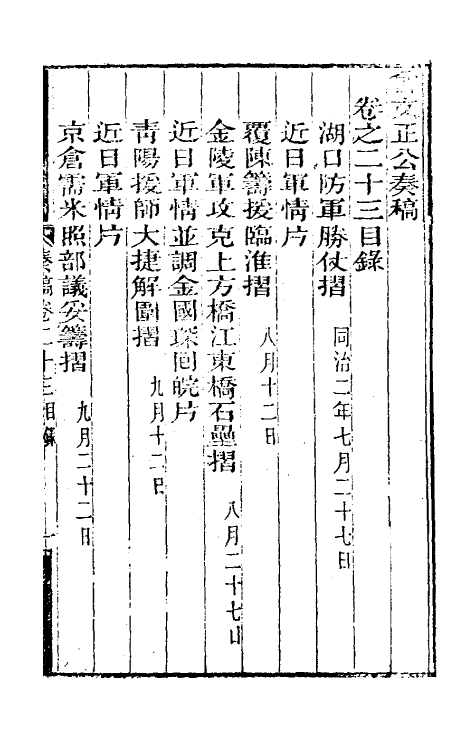 文正公奏稿
卷之二十三目錄
湖口防軍勝仗摺 同治二年七月二十七日
近日軍情片
覆陳籌援臨淮摺 八月十二日
金陵軍攻克上方橋江東橋石壘摺 八月二十七
近日軍情並調金國琛囘皖片
青陽援師大捷解圍摺 九月十二日
近日軍情片
京倉需米照部議妥籌摺 九月二十二日
奏稿卷二十三目錄 一